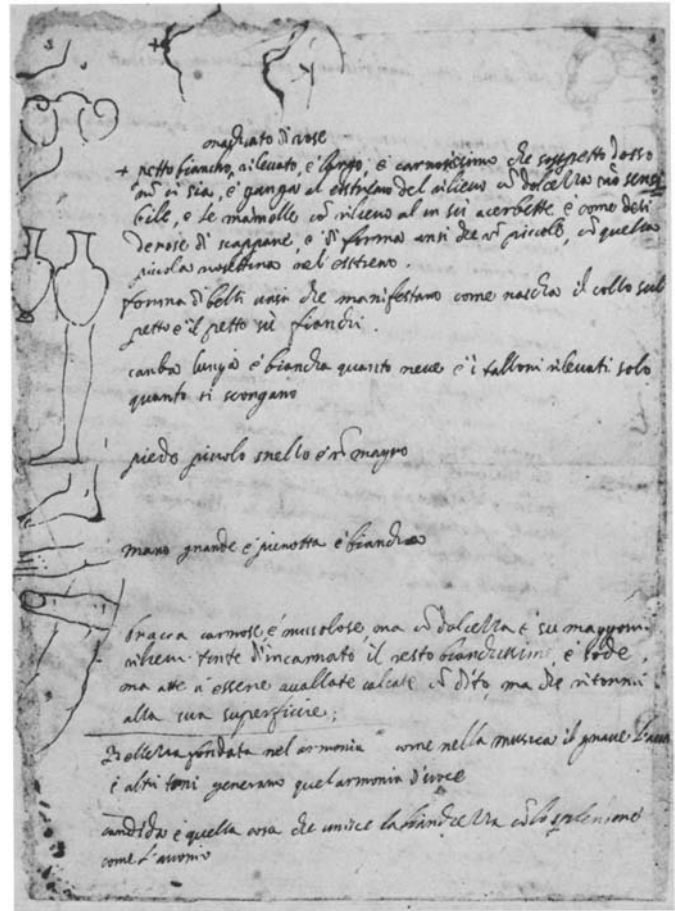 machiato di rose
+ petto biancho, rilevato, e largo, e carnosissimo che sospetto d'osso
nō vi sia, e giunga al estremo del rilievo cō dolcezza nō sensi
bile, e le mamolle cō rilievo al in sù acerbette e come desi
derose di scappare, e di forma anzi che nò picciole, cō quella
picciola rosettina nel estremo.
forma di belli vasi che manifestano come nascha il collo sul
petto e il petto sù fianchi.
canba lunga e biancha quanto neve e i talloni rilevati solo
quanto si scorgano
piedo piccolo snello e nō magro
mano grande e pienotta e biancha
bracca carnose, e muscolose, ma cō dolcezza e su maggiori
rilievi tinte d'incarnato il resto bianchissime, e sode,
ma atte a essere avallate calcate cō dito, ma che ritorni
alla sua superficie;
Bellezza fondata nel armonia come nella musica il grave l'acuto
e altri toni generano quel armonia di voce
candido e quella cosa che unisce la bianchezza cō lo splendore
come l'avorio